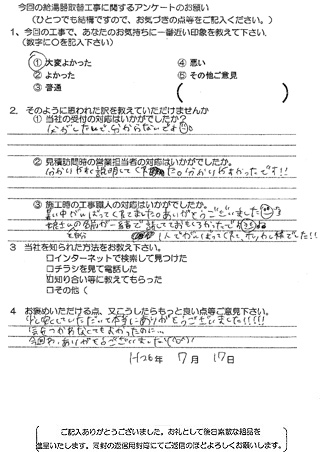 今回の給湯器取替工事に関するアンケートのお願い
(ひとつでも結構ですので、お気づきの点等をご記入ください。)
1、今回の工事で、あなたのお気持ちに一番近い印象を教えて下さい。
(数字に○を記入下さい)
① 大変よかった
④ 悪い
② よかった
⑤ その他ご意見
③ 普通
( )
2. そのように思われた訳を教えていただけませんか
① 当社の受付の対応はいかがでしたか?
分からないです
② 見積訪問時の営業担当者の対応はいかがでしたか。
分かりやすく説明してくれました。分かりやすかったです!!
③ 施工時の工事職人の対応はいかがでしたか。
暑い中がんばってくれてましたのありがとうございました
1人でがんばってくれて
3 当社を知られた方法をお教え下さい。
□インターネットで検索して見つけた
□チラシを見て電話した
□知り合い等に教えてもらった
□その他(
4 お褒めいただける点、又こうしたらもっと良い点等ご意見下さい。
安くしていただいて本当にありがとうございました!!!!
気をつかわなくてもよかったのに…
今回わ、ありがとうございました(^o^)/
H26年 7月 17日
ご記入ありがとうございました。お礼として後日素敵な粗品を
進呈いたします。同封の返信用封筒にてご返信のほどよろしくお願いします。